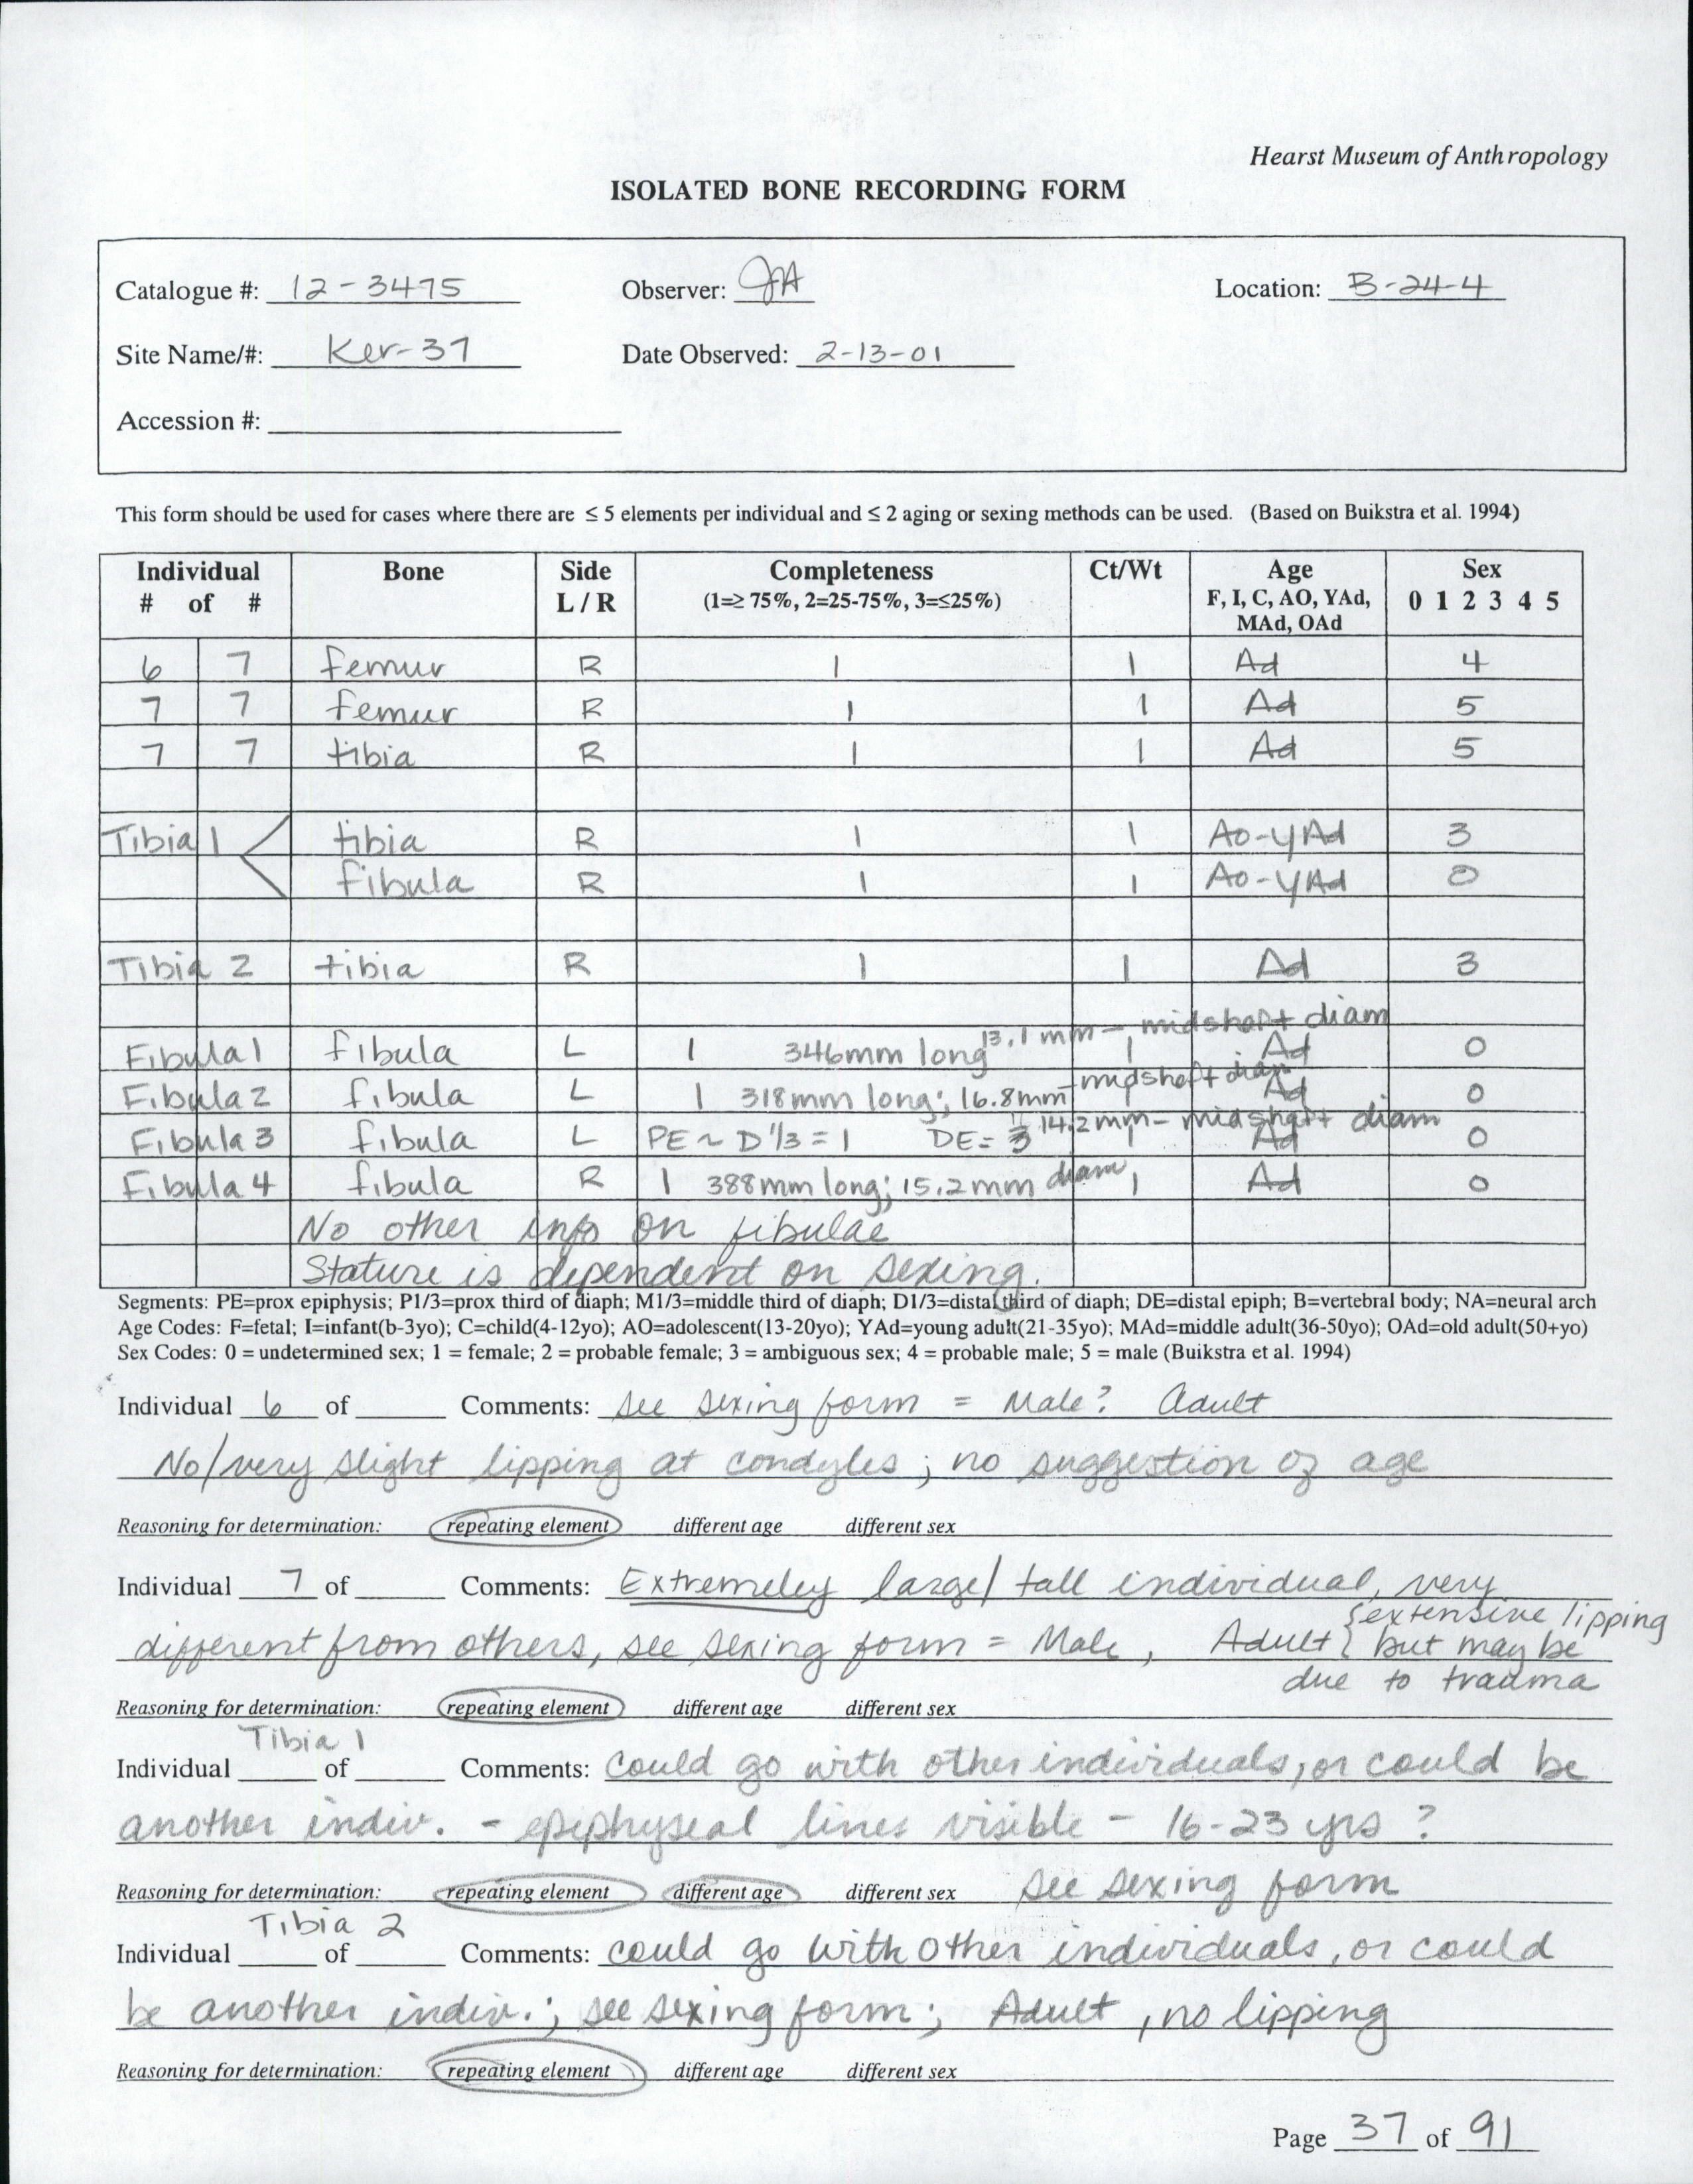 Hearst Museum of Anthropology
ISOLATED BONE RECORDING FORM
Catalogue #: 12-3475 Observer: JA Location: B-24-4
Site Name/#: Ker-37 Date Observed: 2-13-01
Accession #:
This form should be used for cases where there are ≤ 5 elements per individual and ≤ 2 aging or sexing methods can be used. (Based on Buikstra et al. 1994)
Individual Bone Side Completeness Ct/Wt Age Sex
# of # L / R (1=≥ 75%, 2=25-75%, 3=≤25%) F, I, C, AO, YAd, 0 1 2 3 4 5
MAd, OAd
6 7 femur R 1 1 Ad 4
7 7 femur R 1 1 Ad 5
7 7 tibia R 1 1 Ad 5
Tibia 1 tibia R 1 1 AO-YAd 3
fibula R 1 1 AO-YAd 0
Tibia 2 tibia R 1 1 Ad 3
Fibula 1 fibula L 1 346mm long 13.1 mm - midshaft diam 1 Ad 0
Fibula 2 fibula L 1 318mm long; 16.8mm - midshaft diam Ad 0
Fibula 3 fibula L PE ~ D 1/3 = 1 DE= 3 14.2mm - midshaft diam 1 Ad 0
Fibula 4 fibula R 1 388mm long; 15.2mm diam 1 Ad 0
No other info on fibulae
Stature is dependent on sexing.
Segments: PE=prox epiphysis; P1/3=prox third of diaph; M1/3=middle third of diaph; D1/3=distal third of diaph; DE=distal epiph; B=vertebral body; NA=neural arch
Age Codes: F=fetal; I=infant(b-3yo); C=child(4-12yo); AO=adolescent(13-20yo); YAd=young adult(21-35yo); MAd=middle adult(36-50yo); OAd=old adult(50+yo)
Sex Codes: 0 = undetermined sex; 1 = female; 2 = probable female; 3 = ambiguous sex; 4 = probable male; 5 = male (Buikstra et al. 1994)
Individual 6 of Comments: see sexing form = Male? Adult
No/very slight lipping at condyles; no suggestion of age
Reasoning for determination: repeating element different age different sex
Individual 7 of Comments: Extremeley large/tall individual, very
different from others, see sexing form = Male, Adult { extensive lipping
but may be
due to trauma
Reasoning for determination: repeating element different age different sex
Tibia 1
Individual of Comments: could go with other individuals, or could be
another indiv. - epiphyseal lines visible - 16-23 yrs ?
Reasoning for determination: repeating element different age different sex see sexing form
Tibia 2
Individual of Comments: could go with other individuals, or could
be another indiv.; see sexing form; Adult, no lipping
Reasoning for determination: repeating element different age different sex
Page 37 of 91